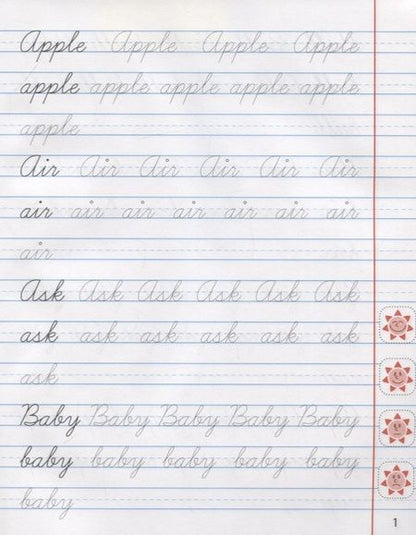 Apple Apple Apple Apple
apple apple apple apple apple
apple
Air Air Air Air Air Air
air air air air air air air
air
Ask Ask Ask Ask Ask Ask
ask ask ask ask ask ask
ask
Baby Baby Baby Baby Baby
baby baby baby baby baby
baby
1